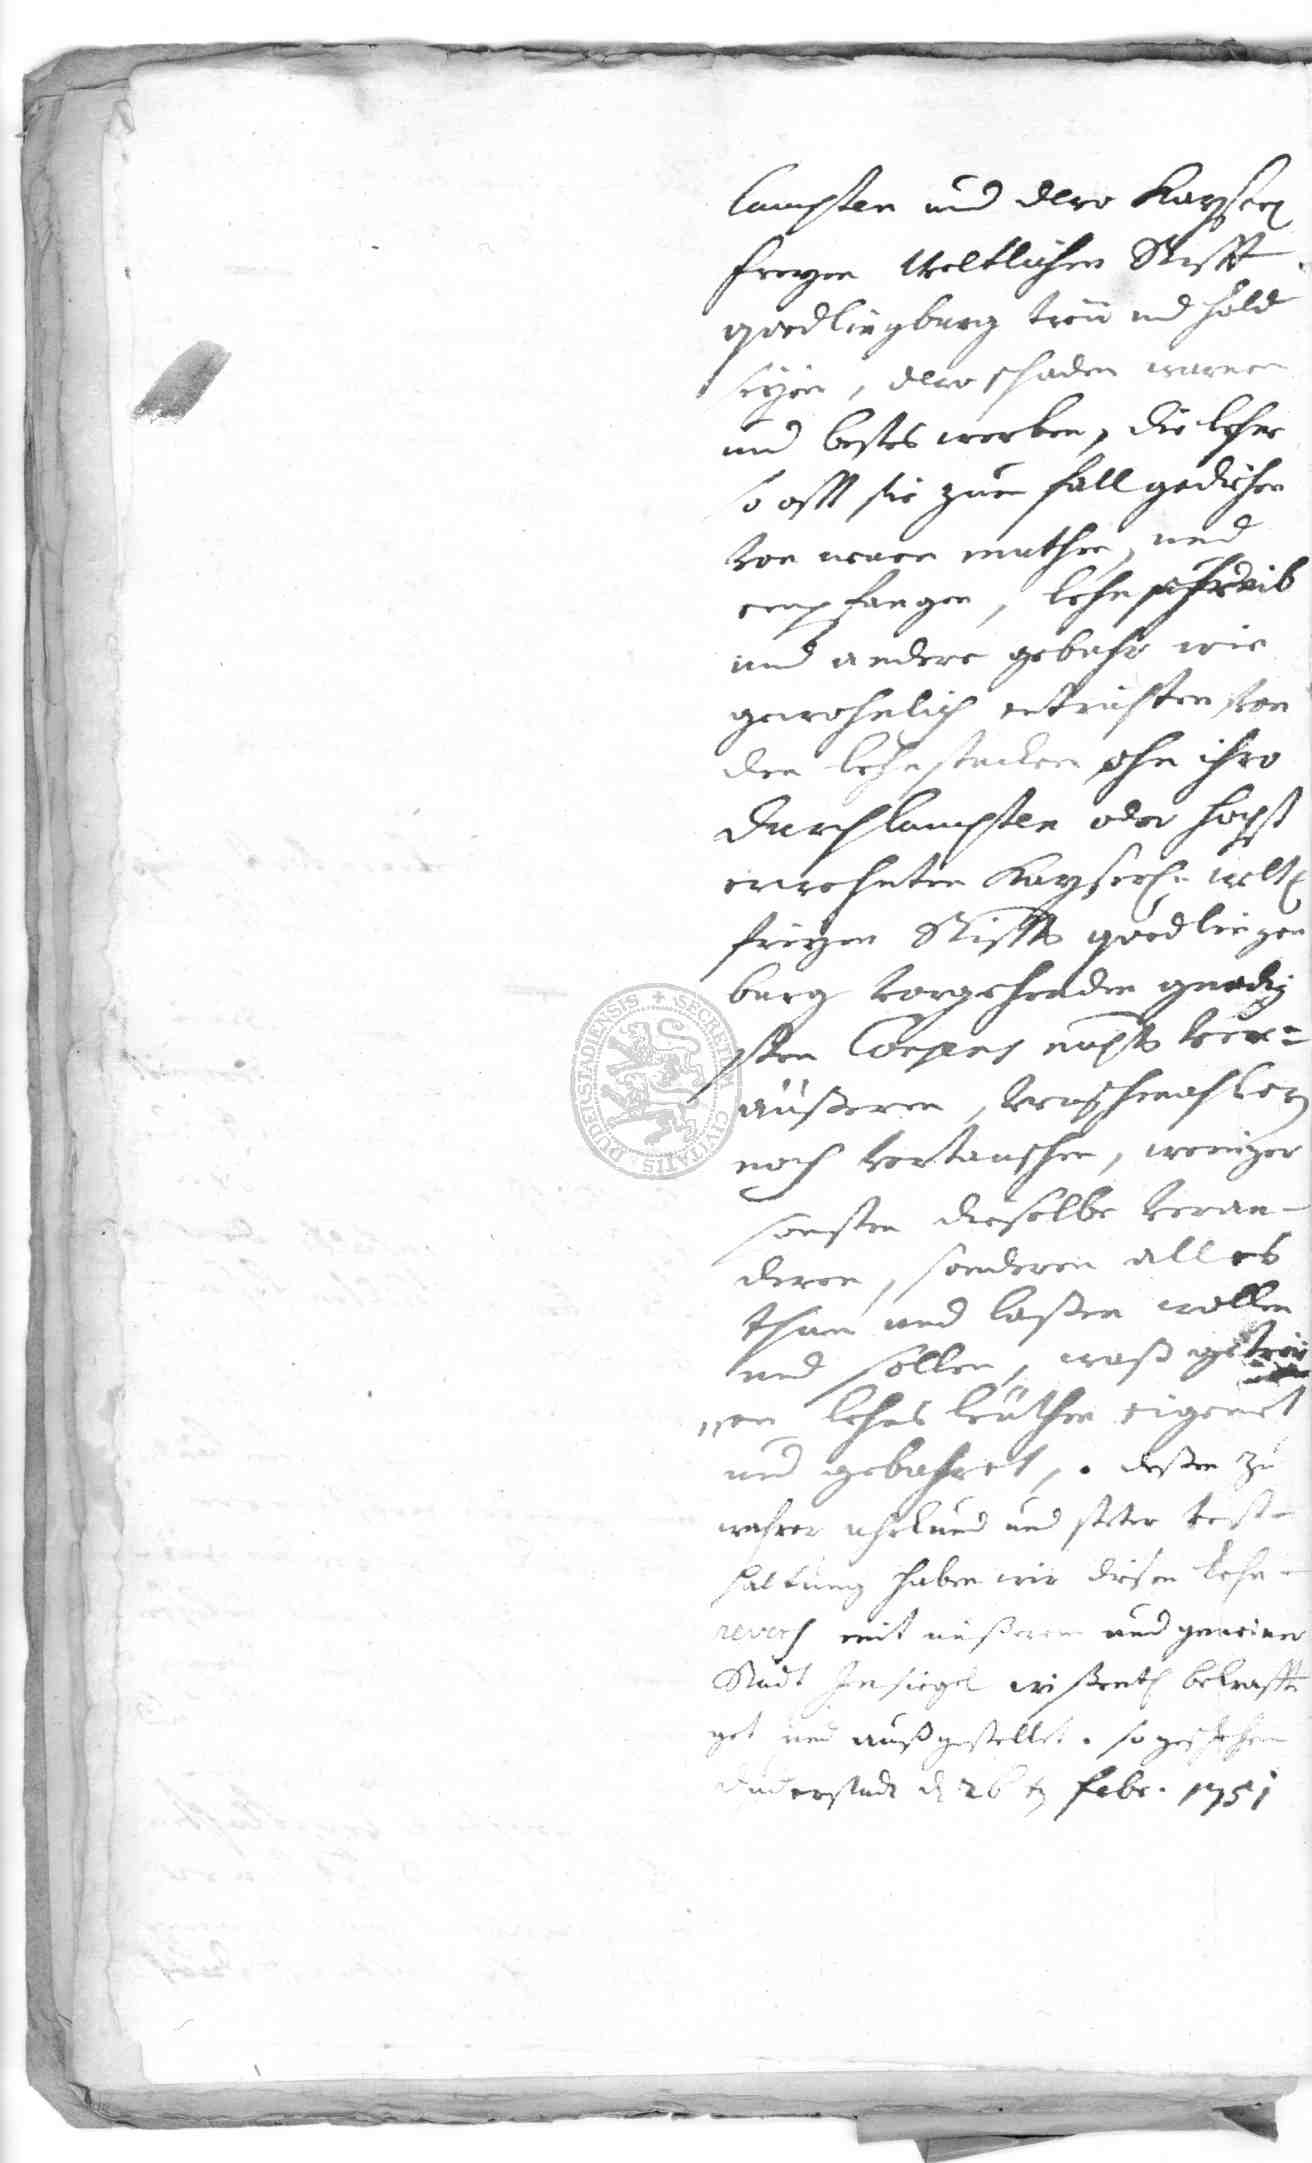 lauchsten und dero Kayserl
freyen Weltlichen Stifft
quedlingburg treü und hold
seyen, dero schaden warnen
und bestes werben, die lehne
so offt sie zum fall gediehen
von uns muthen, und
empfangen, lehn schreib
und andere gebuhr wie
gewohnlich entrichten, von
den lehnstucken ohn ihro
durchlauchsten oder hochst
erwehnten Kayserl. weltl
freyen Stiffts quedlingen
burg vorgehenden gnedig
sten Consens nichts ver=
äüßeren, verschmahleren
noch vertauschen, weniger
sonsten dieselbe veran-
deren, sonderen alles
thun und laßen wollen
und sollen, waß getreü
en lehns leüthen eigenet
und gebuhret, deßen zu
wahrer uhrkund und steter vest-
haltung haben wir diesen lehn-
revers mit unßerem und gemeiner
Stadt Insiegel wißentl bekraffti
get und außgestellet. so geschehen
Duderstadt d 26 t Febr. 1751
SECRETUM CIVITATIS DUDERSTADIENSIS